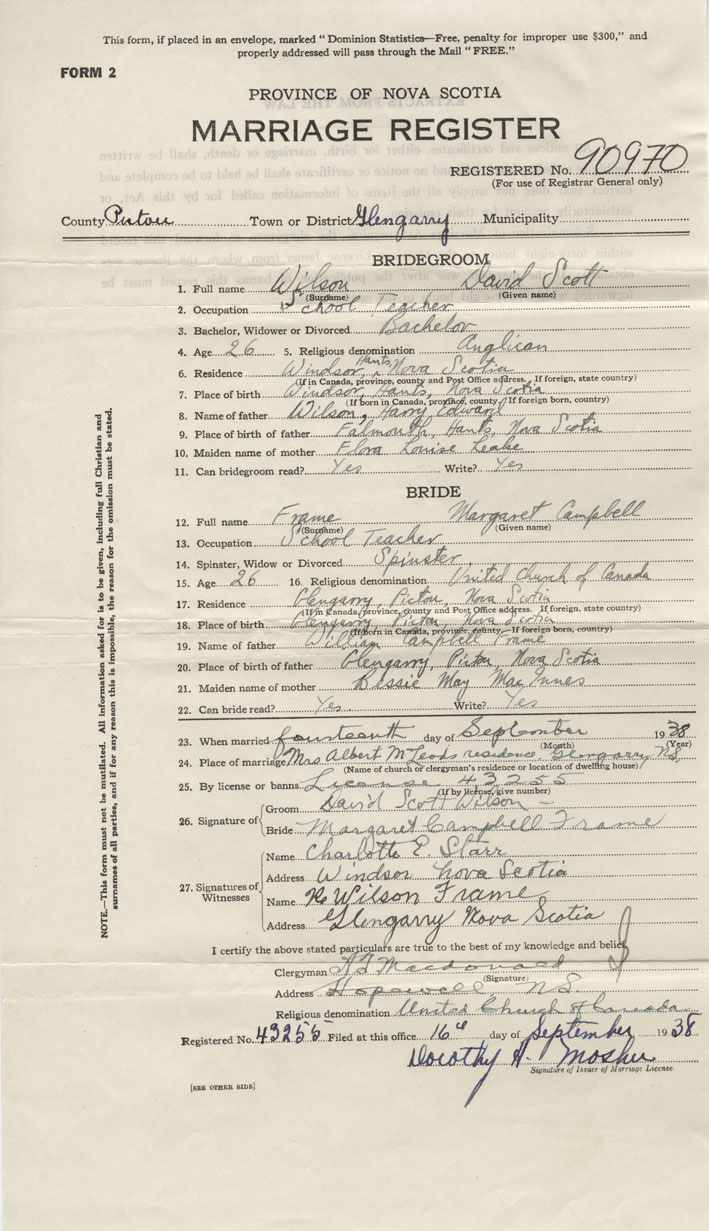 This form, if placed in an envelope, marked “ Dominion Statistics—Free, penalty for improper use $300,” and
properly addressed will pass through the Mail “ FREE.”
FORM 2
PROVINCE OF NOVA SCOTIA
MARRIAGE REGISTER
REGISTERED No. 90970
(For use of Registrar General only)
County Pictou Town or District Glengarry Municipality
BRIDEGROOM
1. Full name Wilson David Scott
(Surname) (Given name)
2. Occupation School Teacher
3. Bachelor, Widower or Divorced Bachelor
4. Age 26 5. Religious denomination Anglican
6. Residence Windsor, Hants, Nova Scotia
(If in Canada, province, county and Post Office address. If foreign, state country)
7. Place of birth Windsor, Hants, Nova Scotia
(If born in Canada, province, county. If foreign born, country)
8. Name of father Wilson, Harry Edward
9. Place of birth of father Falmouth, Hants, Nova Scotia
10. Maiden name of mother Flora Louise Leake
11. Can bridegroom read? Yes Write? Yes
BRIDE
12. Full name Frame Margaret Campbell
(Surname) (Given name)
13. Occupation School Teacher
14. Spinster, Widow or Divorced Spinster
15. Age 26 16. Religious denomination United Church of Canada
17. Residence Glengarry, Pictou, Nova Scotia
(If in Canada, province, county and Post Office address. If foreign, state country)
18. Place of birth Glengarry, Pictou, Nova Scotia
(If born in Canada, province, county. If foreign born, country)
19. Name of father William Campbell Frame
20. Place of birth of father Glengarry, Pictou, Nova Scotia
21. Maiden name of mother Bessie May MacInnes
22. Can bride read? Yes. Write? Yes
23. When married fourteenth day of September 1938
(Month) (Year)
24. Place of marriage Mrs Albert McLeods residence Glengarry N.S.
(Name of church or clergyman's residence or location of dwelling house)
25. By license or banns License 43255
(If by license, give number)
26. Signature of Groom David Scott Wilson
Bride Margaret Campbell Frame
27. Signatures of Witnesses
Name Charlotte E. Starr
Address Windsor Nova Scotia
Name Wilson Frame
Address Glengarry Nova Scotia
I certify the above stated particulars are true to the best of my knowledge and belief.
Clergyman Macdonald
(Signature)
Address Hopewell, N.S.
Religious denomination United Church of Canada
Registered No. 43255 Filed at this office 16th day of September 1938
Dorothy H. Mosher
Signature of Issuer of Marriage License.
[SEE OTHER SIDE]
NOTE.—This form must not be mutilated. All information asked for is to be given, including full Christian and
surnames of all parties, and if for any reason this is impossible, the reason for the omission must be stated.